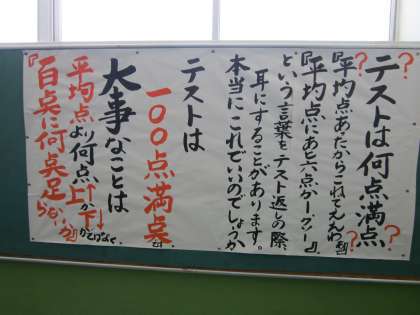 ?テストは何点満点?
?『平均点あたからこれでええわ』
『平均点にあと六点かークソー』?
という言葉をテスト返しの際、
耳にすることがあります。
本当にこれでいいのでしょうか
テストは
一〇〇点満点
大事なことは
平均点より何点↑上か下↓かではなく
『百点に何点足らないか』